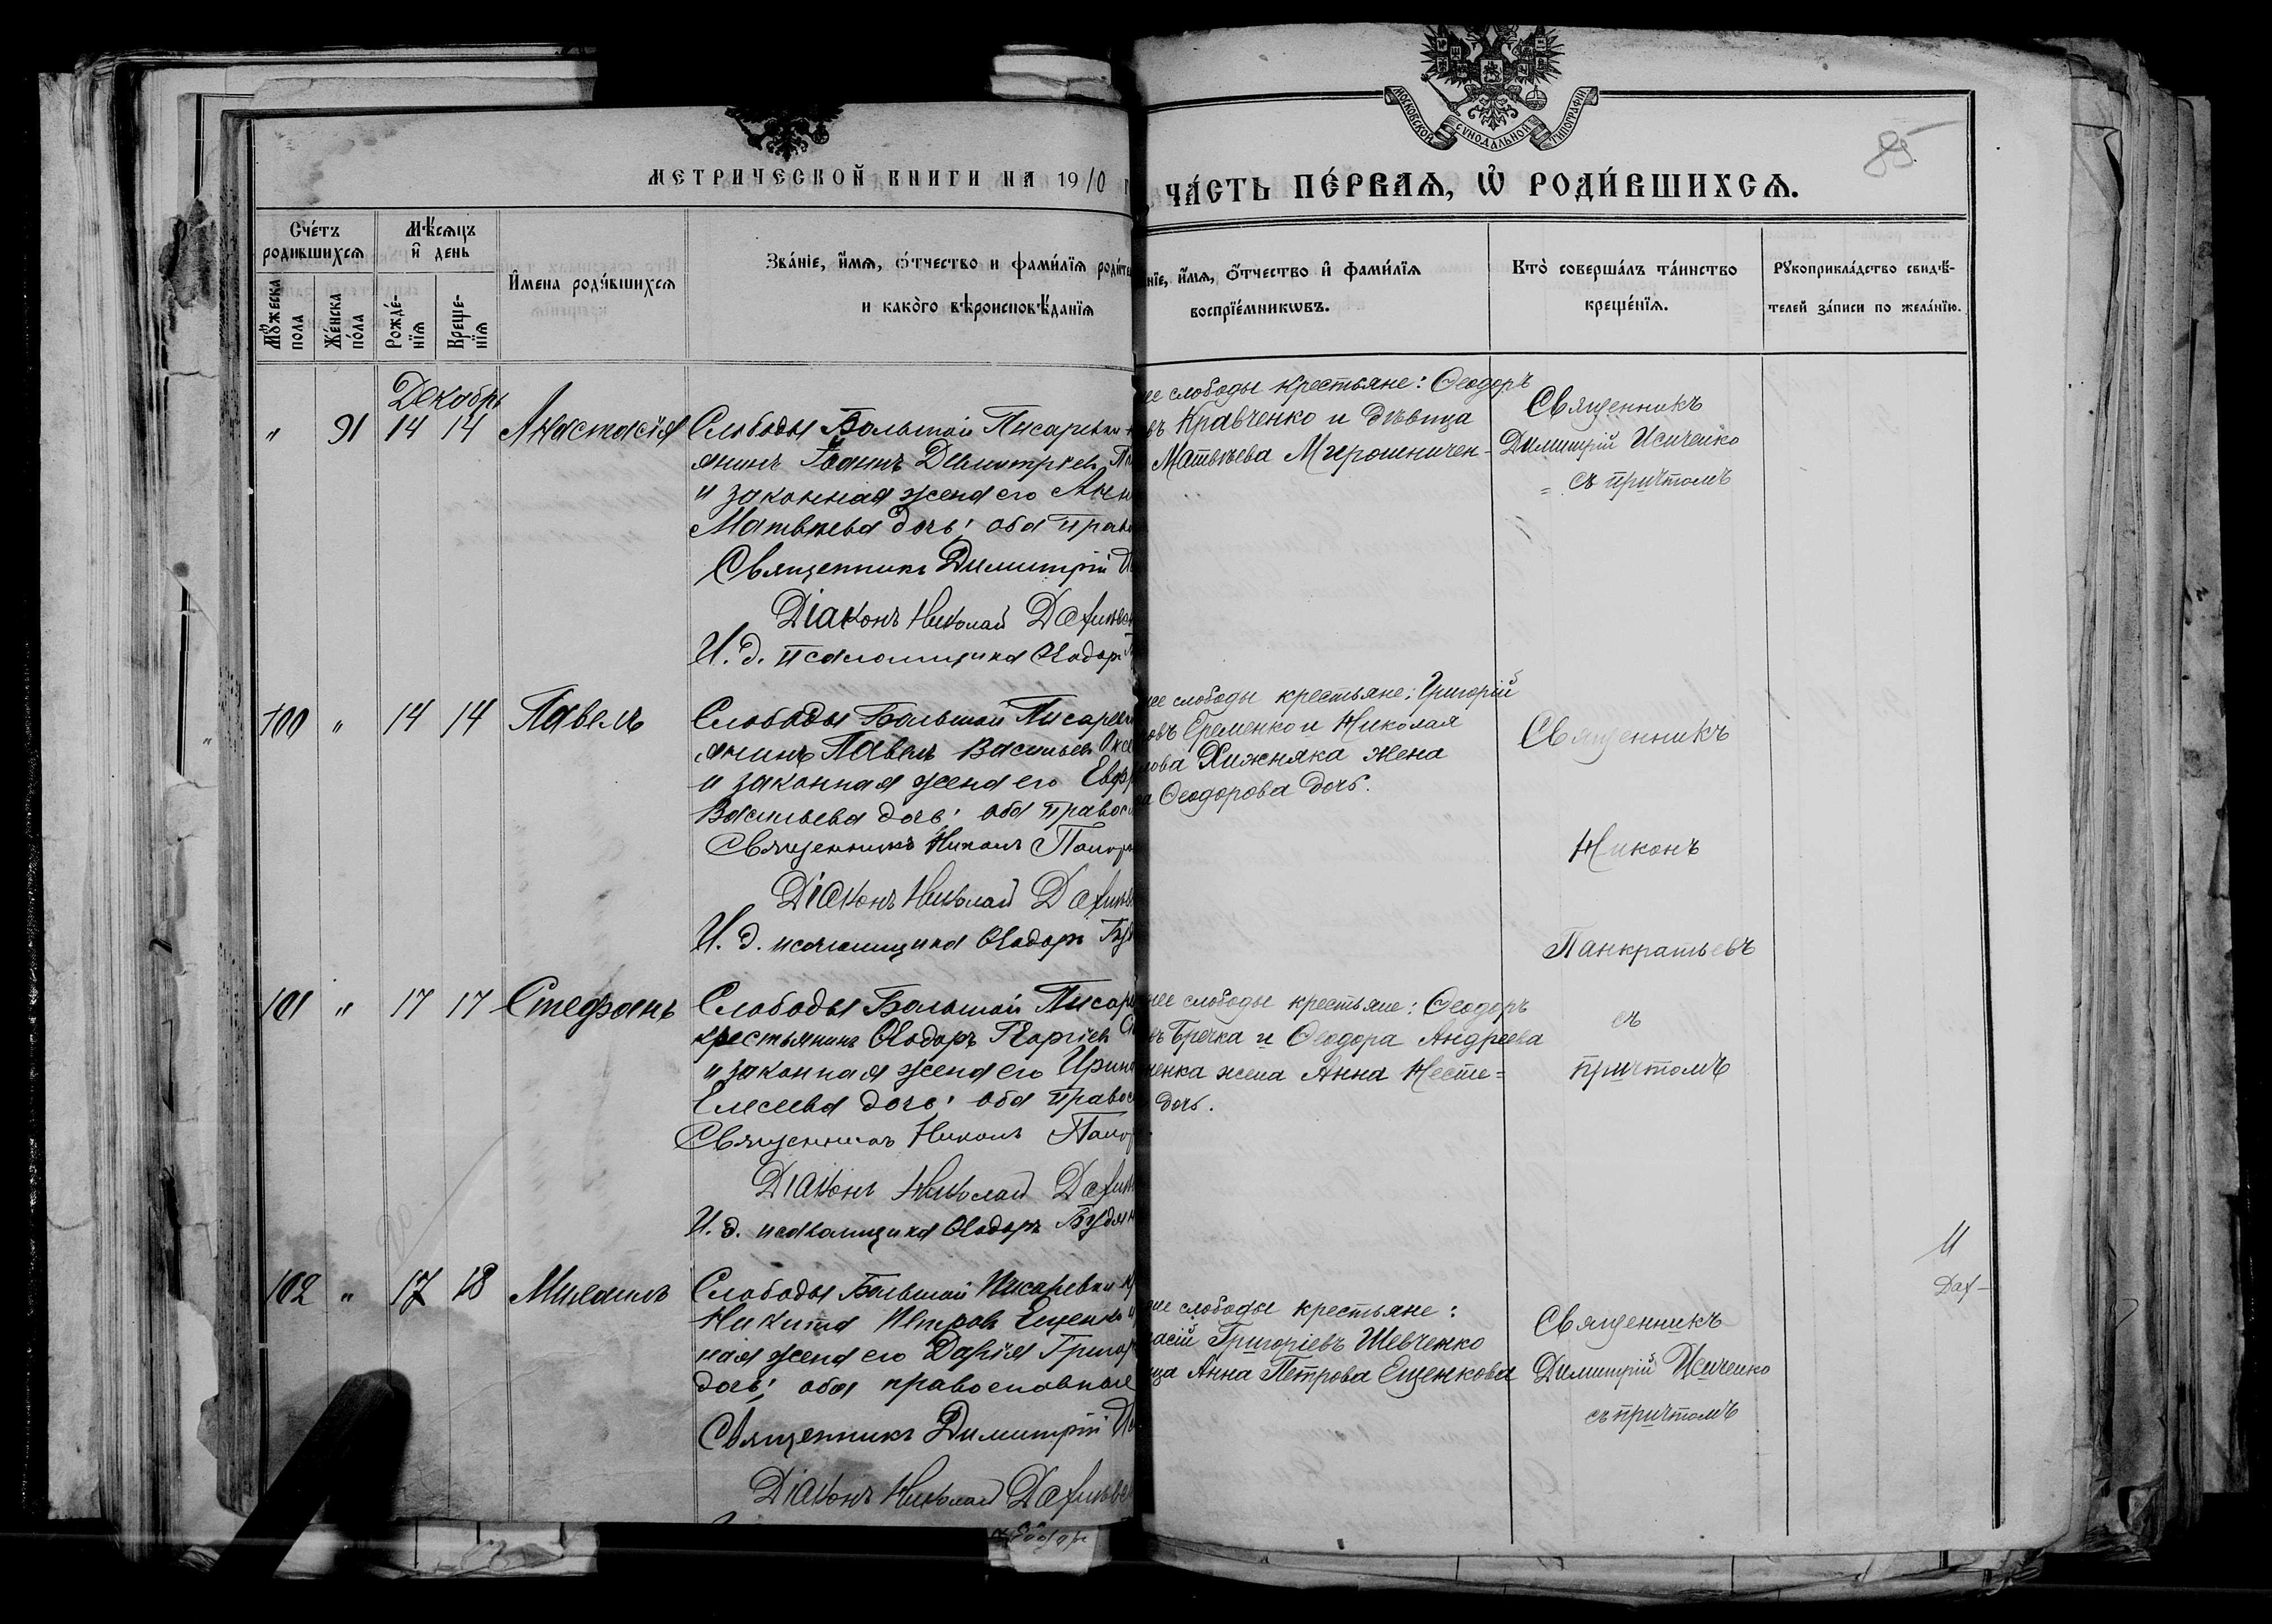 МОСКОВСКОЙ СУНОДАЛЬНОЙ ТИПОГРАФІИ
85
МЕТРИЧЕСКОЙ КНИГИ НА 1910 г
ЧА́СТЬ ПЕ́РВАѦ, Ѡ҆ РОДИ́ВШИХСѦ.
Сче́тъ родившихсѧ
Мѣ́сѧцъ и҆ день
Мꙋ́жеска пола
Же́нска по́ла
Рожде́-нїѧ
Креще-нїѧ
И҆мена роди́вшихсѧ
Зва́нїе, и҆́мѧ, ѻ́тчество и фами́лїѧ роди́те
и како̀го вѣроисповѣ́данїѧ
нїе, и҆́мѧ, ѻ҆́тчество и҆ фами́лїѧ
воспрїе́мникѡвъ.
Кто̀ соверша́лъ та́инство
креще́нїѧ.
Рꙋкоприкла́дство свидѣ́-
телей за́писи по жела́нїю.
Декабрь
" 91 14 14 Анастасія
Слободы Большой Писаревки
янинъ Іоаннъ Димитріевъ
и законная жена его
Матвѣева дочь; оба право
Священникъ Димитрій
Діаконъ Николай
И. д. псаломщика Ѳеодоръ
слободы крестьяне: Ѳеодоръ
Кравченко и дѣвица
Матвѣева Мирошничен-
Священникъ
Димитрій Исиченко
съ причтомъ
100 " 14 14 Павелъ
Слободы Большой Писарев
янинъ Павелъ Васильев
и законная жена его Евфр
Васильева дочь; оба правос
Священникъ Никонъ
Діаконъ Николай
И. д. псаломщика Ѳеодоръ
слободы крестьяне: Григорій
Еременко и Николая
Хижняка жена
Ѳеодорова дочь.
Священникъ
Никонъ
Панкратьевъ
съ
причтомъ
101 " 17 17 Стефанъ
Слободы Большой Писаре
крестьянинъ Ѳеодоръ Георгіевъ
и законная жена его Ирина
Елисеева дочь; оба правос
Священникъ Никонъ
Діаконъ Николай
И. д. псаломщика Ѳеодоръ Будян
слободы крестьяне: Ѳеодоръ
Гречка и Ѳеодора Андреева
жена Анна Несте=
дочь.
102 " 17 18 Михаилъ
Слободы Большой Писаревки
Никита Петровъ Ещенко
ная жена его Дарія Григор
дочь; оба православные
Священникъ Димитрій
Діаконъ Николай
слободы крестьяне:
Григоріевъ Шевченко
Анна Петрова Ещенкова
Священникъ
Димитрій Исиченко
съ причтомъ